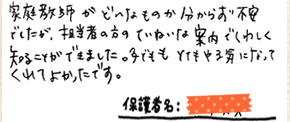 家庭教師がどんなものか分からず不安
でしたが、担当者の方のていねいな案内でくわしく
知ることができました。子どもも とてもやる気になって
くれてよかったです。
保護者名：